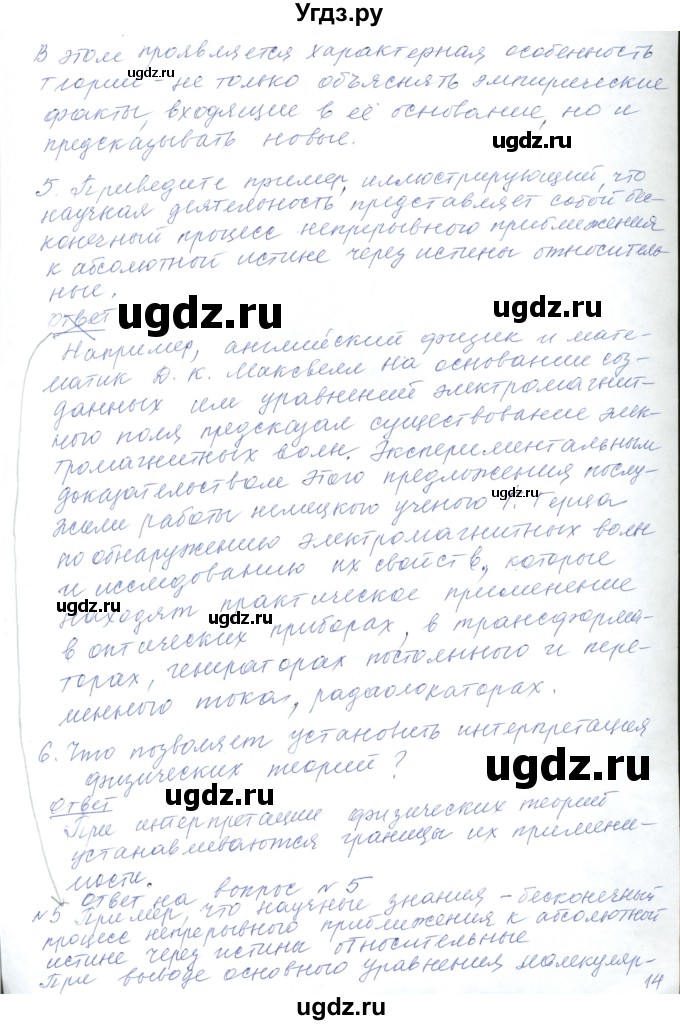 Угдз.ру
В этом проявляется характерная особенность
теории - не только объяснять эмпирические
факты, входящие в её основание, но и
предсказывать новые.
5. Приведите пример, иллюстрирующий, что
научная деятельность представляет собой бес-
конечный процесс непрерывного приближения
к абсолютной истине через истины относитель-
ные.
Ответ
Например, английский физик и мате-
матик Д. К. Максвелл на основании соз-
данных им уравнений электромагнит-
ного поля предсказал существование элек-
тромагнитных волн. Экспериментальным
доказательством этого предложения послу-
жили работы немецкого ученого Г. Герца
по обнаружению электромагнитных волн
и исследованию их свойств, которые
находят практическое применение
в оптических приборах, в трансформа-
торах, генераторах постоянного и пере-
менного тока, радиолокаторах.
6. Что позволяет установить интерпретация
физических теорий?
Ответ
При интерпретации физических теорий
устанавливаются границы их примени-
мости.
Ответ на вопрос №5
№5 Пример, что научные знания - бесконечный
процесс непрерывного приближения к абсолютной
истине через истины относительные
При выводе основного уравнения молекуляр-
14
ugdz.ru
ugdz.ru
ugdz.ru
ugdz.ru
ugdz.ru
ugdz.ru
ugdz.ru
ugdz.ru
ugdz.ru
ugdz.ru
ugdz.ru
ugdz.ru
ugdz.ru
ugdz.ru